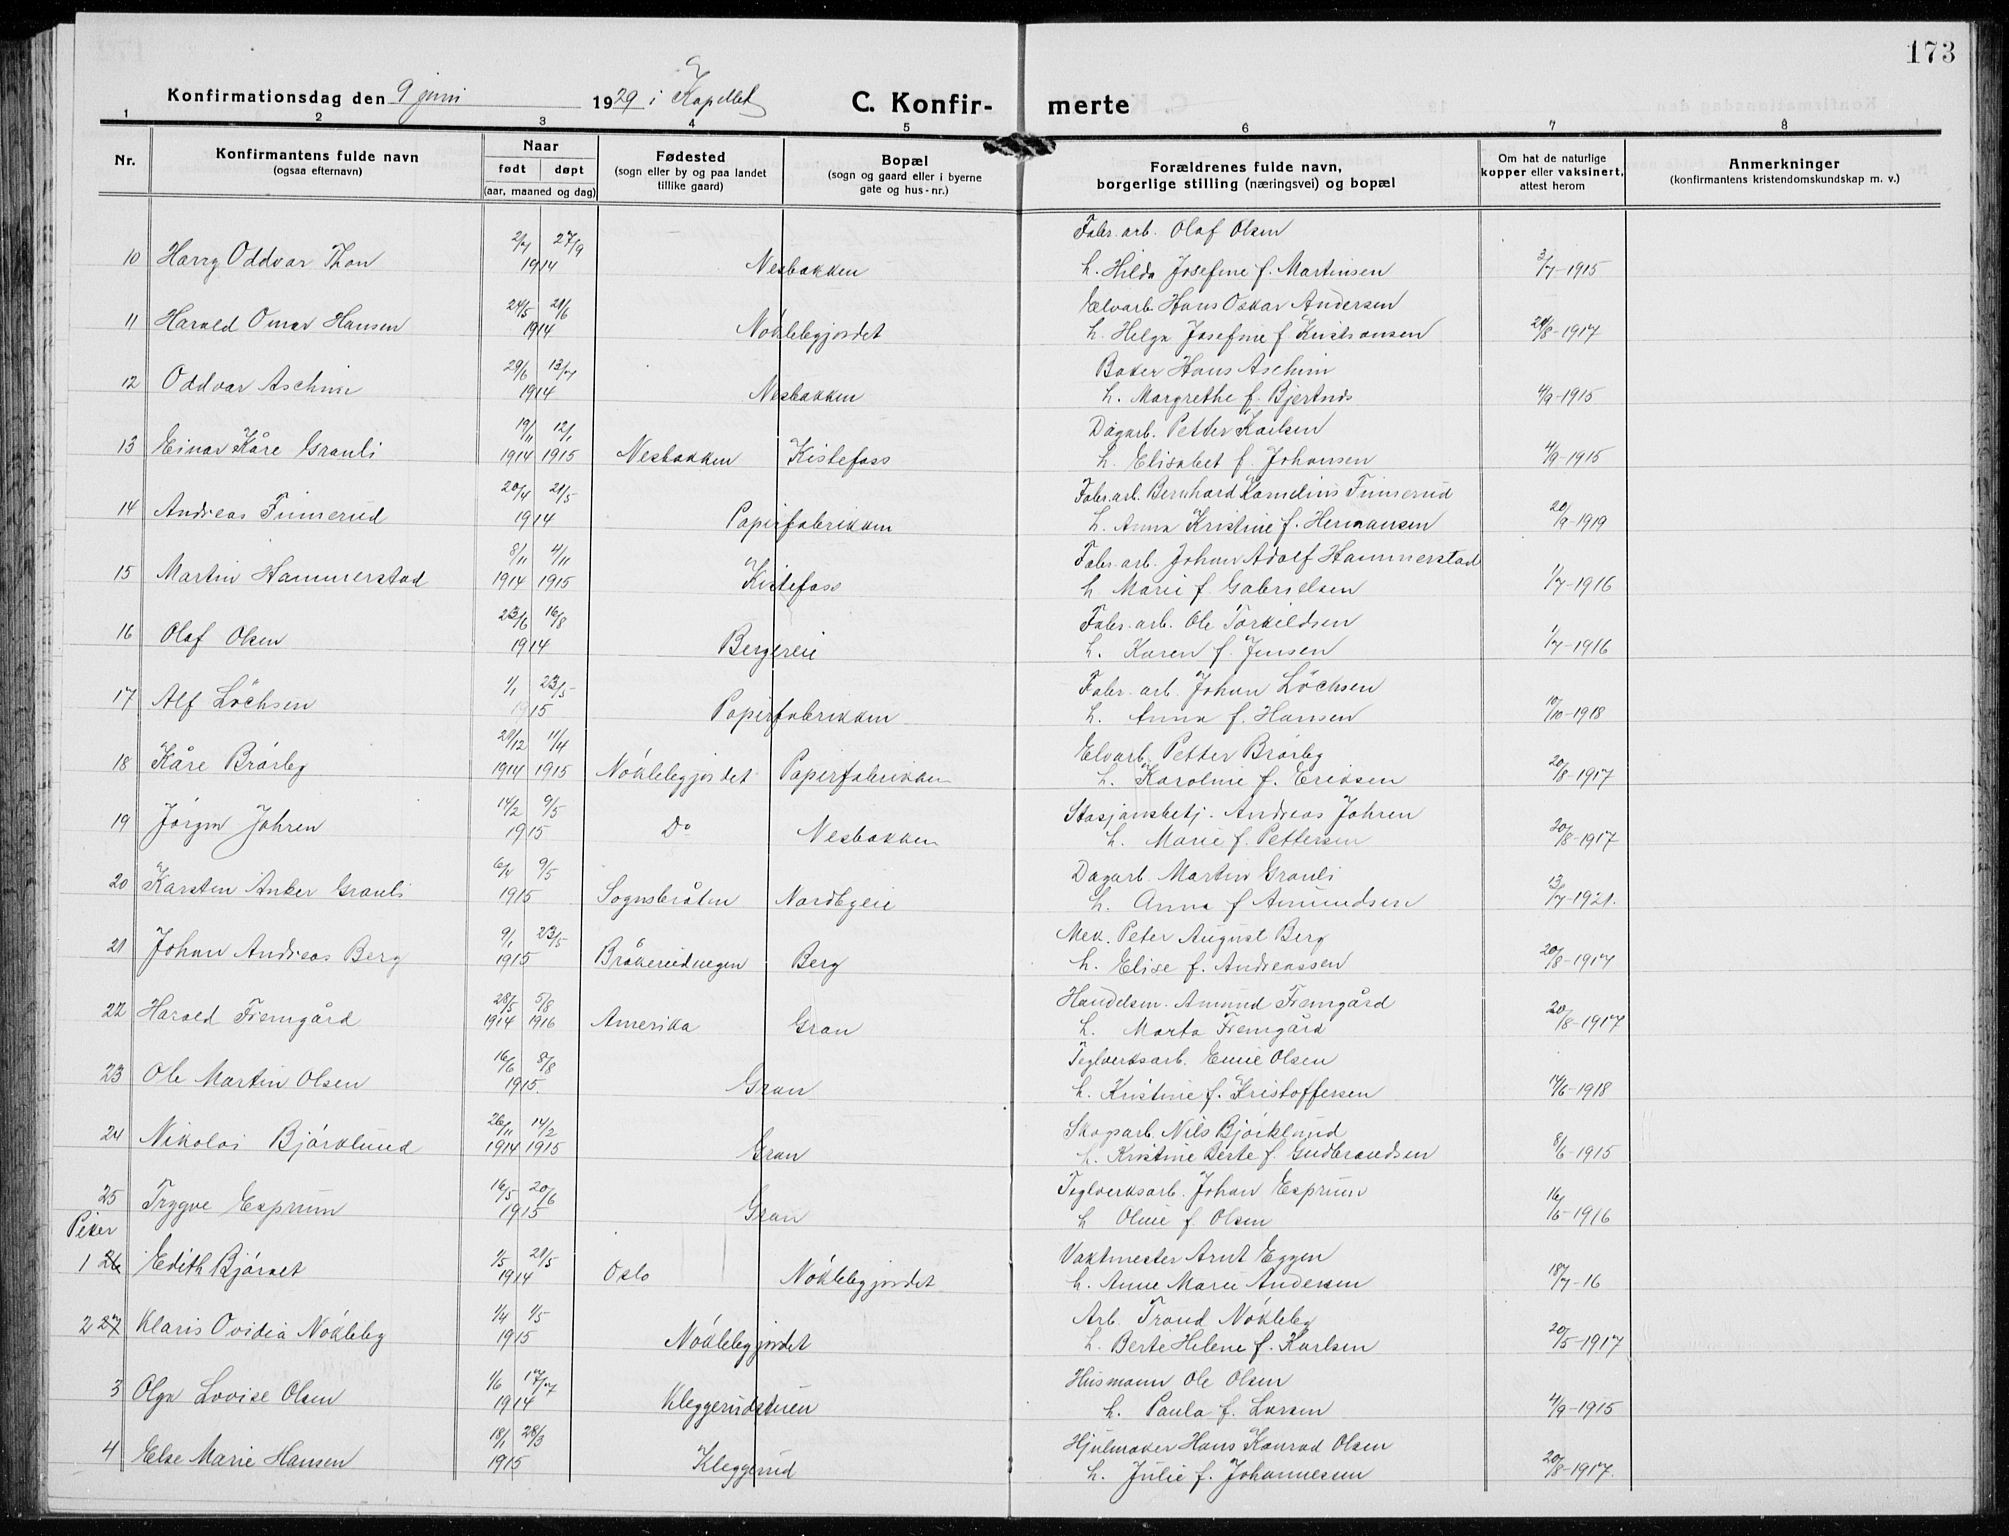 173
Konfirmationsdag den 9 juni 1929 i Kapellet
C. Konfirmerte
1 2 3 4 5 6 7 8
Nr.
Konfirmantens fulde navn
(ogsaa efternavn)
Naar
født døpt
(aar, maaned og dag)
Fødested
(sogn eller by og paa landet
tillike gaard)
Bopæl
(sogn og gaard eller i byerne
gate og hus-nr.)
Forældrenes fulde navn,
borgerlige stilling (næringsvei) og bopæl
Om hat de naturlige
kopper eller vaksinert,
attest herom
Anmerkninger
(konfirmantens kristendomskundskap m. v.)
2/7 27/9 Fabr. arb. Olaf Olsen
10 Harry Oddvar Thon 1914 Nesbakken h. Hilda Josefine f. Martinsen 3/7-1915
24/5 21/6 Elvarb. Hans Oskar Andersen
11 Harald Omar Hansen 1914 Nøklebygjordet h. Helga Josefine f. Kristiansen 20/8-1917
29/6 13/7 Baker Hans Aschim
12 Oddvar Aschim 1914 Nesbakken h. Margrethe f. Bjertnæs 4/9-1915
19/11 12/1 Dagarb. Petter Karlsen
13 Einar Kåre Granli 1914 1915 Nesbakken Kistefoss h. Elisabet f. Johansen 4/9-1915
20/4 21/5 Fabr. arb. Bernhard Kornelius Finnerud
14 Andreas Finnerud 1914 Papirfabrikken h. Anna Kristine f. Hermansen 20/9-1919
8/11 4/11 Fabr. arb. Johan Adolf Hammerstad
15 Martin Hammerstad 1914 1915 Kistefoss h Marie f. Gabrielsen 1/7-1916
23/6 16/8 Fabr. arb. Ole Torkildsen
16 Olaf Olsen 1914 Bergereie h. Karen f. Jensen 1/7-1916
1/1 23/5 Fabr. arb. Johan Löchsen
17 Alf Löchsen 1915 Papirfabrikken h. Anna f. Hansen 10/10-1918
29/12 11/4 Elvarb. Petter Brørby
18 Kåre Brørby 1914 1915 Nøklebygjordet Papirfabrikken h. Karoline f. Eriksen 20/8-1917
14/2 9/5 Stasjonsbetj. Andreas Johren
19 Jørgen Johren 1915 Do Nesbakken h. Marie f. Pettersen 20/8-1917
6/4 9/5 Dagarb. Martin Granli
20 Karsten Anker Granli 1915 Sognsbråten Nordbyeie h. Anna f Amundsen 13/7-1921.
9/1 23/5 Mek. Peter August Berg
21 Johan Andreas Berg 1915 Bråkerudvegen Berg h. Elise f. Andreassen 20/8-1917
28/5 5/8 Handelsm. Amund Fremgård
22 Harald Fremgård 1914 1916 Amerika Gran h. Marta Fremgård 20/8-1917
16/6 8/8 Teglverksarb. Emil Olsen
23 Ole Martin Olsen 1915. Gran h. Kristine f. Kristoffersen 14/6-1918
26/11 14/2 Skogsarb. Nils Bjørklund
24 Nikolai Bjørklund 1914 1915 Gran h. Kristine Berte f. Gudbrandsen 8/6-1915
16/5 20/6 Teglverksarb. Johan Esprum
25 Trygve Esprum 1915 Gran h Oline f. Olsen 16/6-1916
Piker
1/5 21/5 Vaktmester Arnt Eggen
1 26 Edith Bjørset 1914 Oslo Nøklebygjordet h. Anne Marie Andersen 18/7-16
1/4 1/5 Arb. Trond Nøkleby
2 27 Klaris Ovidia Nøkleby 1915 Nøklebygjordet h. Berte Helene f. Karlsen 20/5-1917
1/6 17/7 Husmann Ole Olsen
3 Olga Lovise Olsen 1914 Kleggerudstuen h. Paula f. Larsen 4/9-1915
18/1 28/3 Hjulmaker Hans Konrad Olsen
4 Else Marie Hansen 1915 Kleggerud h. Julie f. Johannesen 20/8-1917.